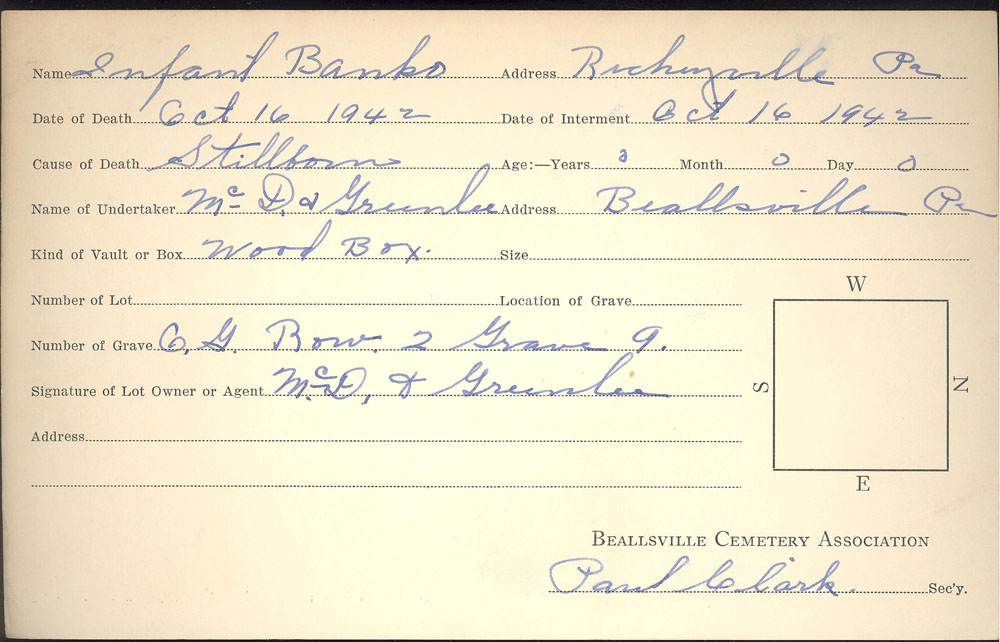 Name Infant Banko Address Richeyville Pa
Date of Death Oct 16 1942 Date of Interment Oct 16 1942
Cause of Death Stillborn Age:—Years 0 Month 0 Day 0
Name of Undertaker McD. & Greenlee Address Beallsville Pa
Kind of Vault or Box Wood Box. Size
Number of Lot Location of Grave
W
Number of Grave C. G. Row. 2 Grave 9.
Signature of Lot Owner or Agent McD. & Greenlee
S N
Address
E
Beallsville Cemetery Association
Paul Clark. Sec'y.